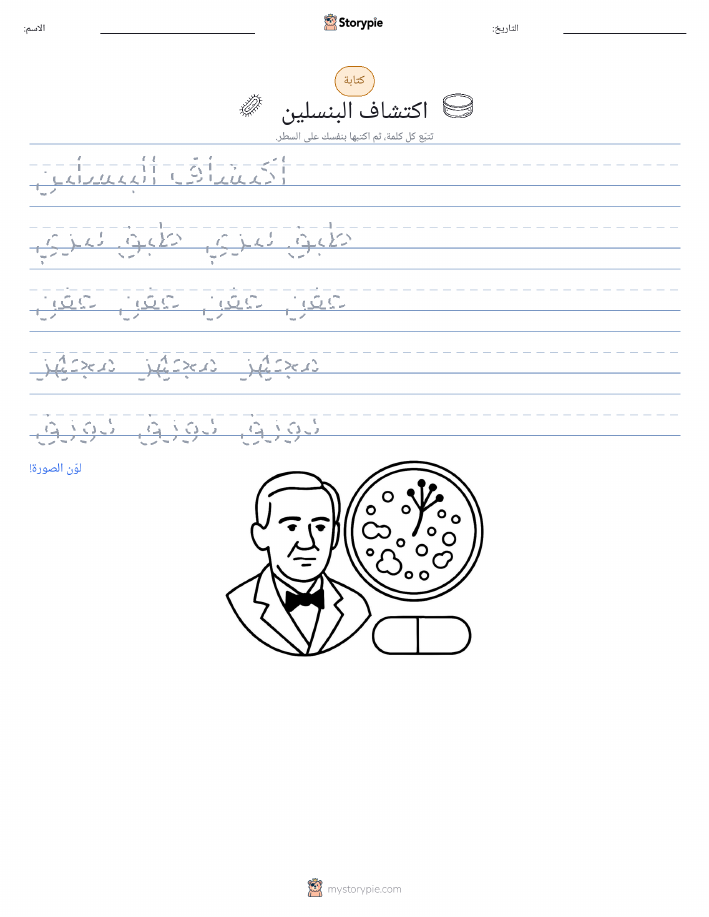 Storypie
الاسم: التاريخ:
كتابة
اكتشاف البنسلين
تتبّع كل كلمة، ثم اكتبها بنفسك على السطر.
اكتشاف البنسلين
طبق بتري طبق بتري
عفن عفن عفن عفن
لوّن الصورة!
mystorypie.com